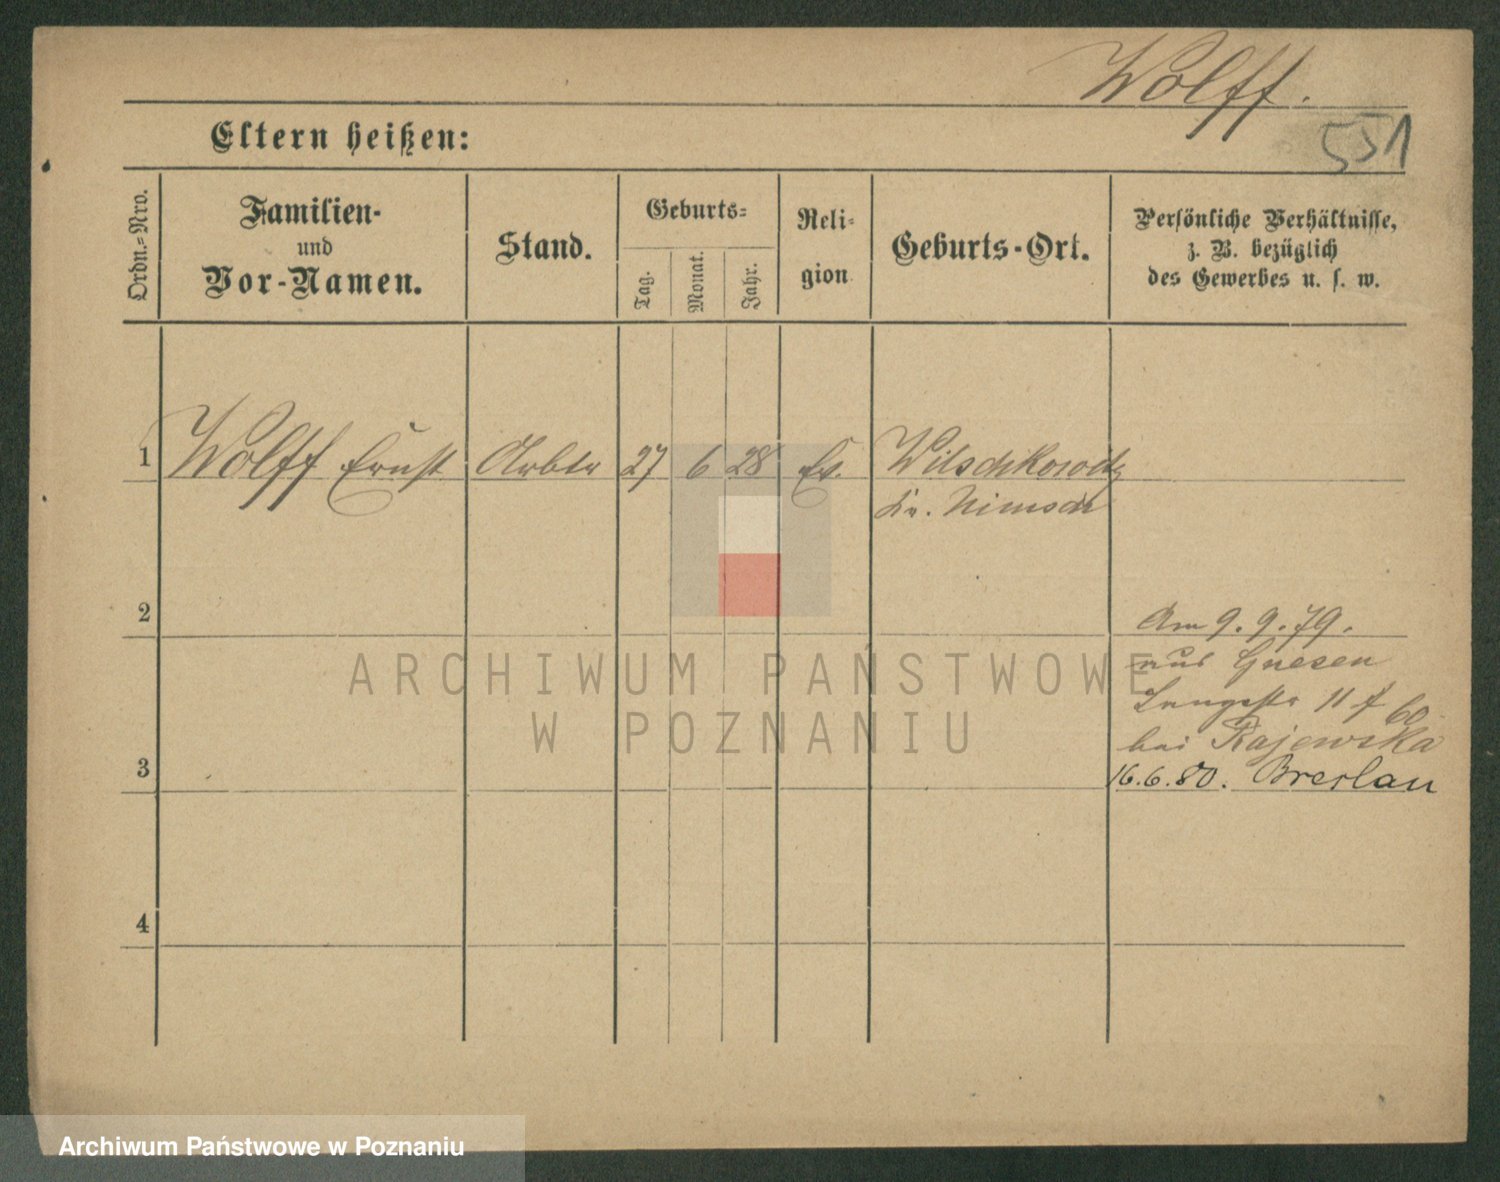 Wolff.
551
Eltern heißen:
Ordn.=Nro.
Familien-
und
Vor-Namen.
Stand.
Geburts=
Tag.
Monat.
Jahr.
Reli=
gion
Geburts-Ort.
Persönliche Verhältnisse,
z. B. bezüglich
des Gewerbes u. s. w.
1 Wolff Ernst Arbtr 27 6 28 Ev. Wilschkowitz
Kr. Nimsch
2
Am 9. 9. 79.
aus Gnesen
Langestr 11 f 60
bei Rajewska
3
16. 6. 80. Breslau
4
ARCHIWUM PAŃSTWOWE
W POZNANIU
Archiwum Państwowe w Poznaniu